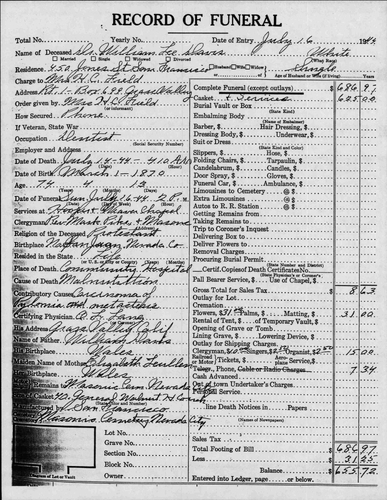 RECORD OF FUNERAL
Total No. Yearly No. Date of Entry July 16 1944
Name of Deceased Dr. William Lee Davis White
Married Single Widowed Divorced (What Race)
Residence 450 Jones St San Francisco Husband/Wife/Widow
Charge to Mrs H.C. Field Age of Husband or Wife (if living) Years
Address Rt. 1 - Box 698 Grass Valley
Order given by Mrs H C Field
How Secured Phone
If Veteran, State War
Occupation Dentist
(Social Security Number)
Employer and Address
Date of Death July 14-44 - 4:10 AM
Date of Birth March 1-1870
Age 74 4 13
(Years) (Months) (Days)
Date of Funeral Sun July 16-44 2 P.M.
Services at Hooper & Weaver Chapel
Clergyman Rev Mark & Masonic
Religion of the Deceased Protestant
Birthplace North San Juan, Nevada Co.
Resided in the State Life
Place of Death Community Hospital
Cause of Death Malnutrition
Contributory Causes Carcinoma of
metastases
Certifying Physician A. C. Lang
His Address Grass Valley Calif
Name of Father William Davis
His Birthplace Wales
Maiden Name of Mother Elizabeth
Her Birthplace Wales
Remains Masonic Cem Nevada
Casket
San Francisco
Masonic Cemetery Nevada City
Lot No.
Grave No.
Section No.
Block No.
Owner
Diagram of Lot or Vault
Complete Funeral (except outlays) $ 686.97
Casket & Services 605.00
Burial Vault or Box
(State Kind)
Embalming Body
(Name of Embalmer)
Barber, $ Hair Dressing, $
Dressing Body, $ Underwear, $
Suit or Dress
(State Kind and Color)
Slippers, $ Hose, $
Folding Chairs, $ Tarpaulin, $
Candelabrum, $ Candles, $
Door Spray, $ Gloves, $
Funeral Car, $ Ambulance, $
Limousines to Cemetery @ $
Extra Limousines @ $
Autos to R. R. Station @ $
Getting Remains from
Taking Remains to
Trip to Coroner's Inquest
Delivering Box to
Deliver Flowers to
Removal Charges
Procuring Burial Permit
(State Number and District)
Certif. Copies of Death Certificates No.
(State Physician's or Coroner's)
Pall Bearer Service, $ Use of Chapel, $
Gross Total for Sales Tax $ 8 63
Outlay for Lot
Outlay for
Flowers, $31.00 Palms, $ Matting, $ 31.00
Rental of Tent, $ of Temporary Vault, $
Opening of Grave or Tomb
Lining Grave, $ Lowering Device, $
Outlay for Shipping Charges
Clergyman, $10.00 Singers, $ Organist, $ 15 00
Railroad Tickets, $ Aeroplane, $
Telegr., Phone, Cable or Radio Charges 7 34
Cash Advanced
Out of town Undertaker's Charges
Personal Service
line Death Notices in Papers
(Names of Newspapers)
Sales Tax
Total Footing of Bill $ 686 97
Less 31 25
Balance $ 655.72
Entered into Ledger, page or below.